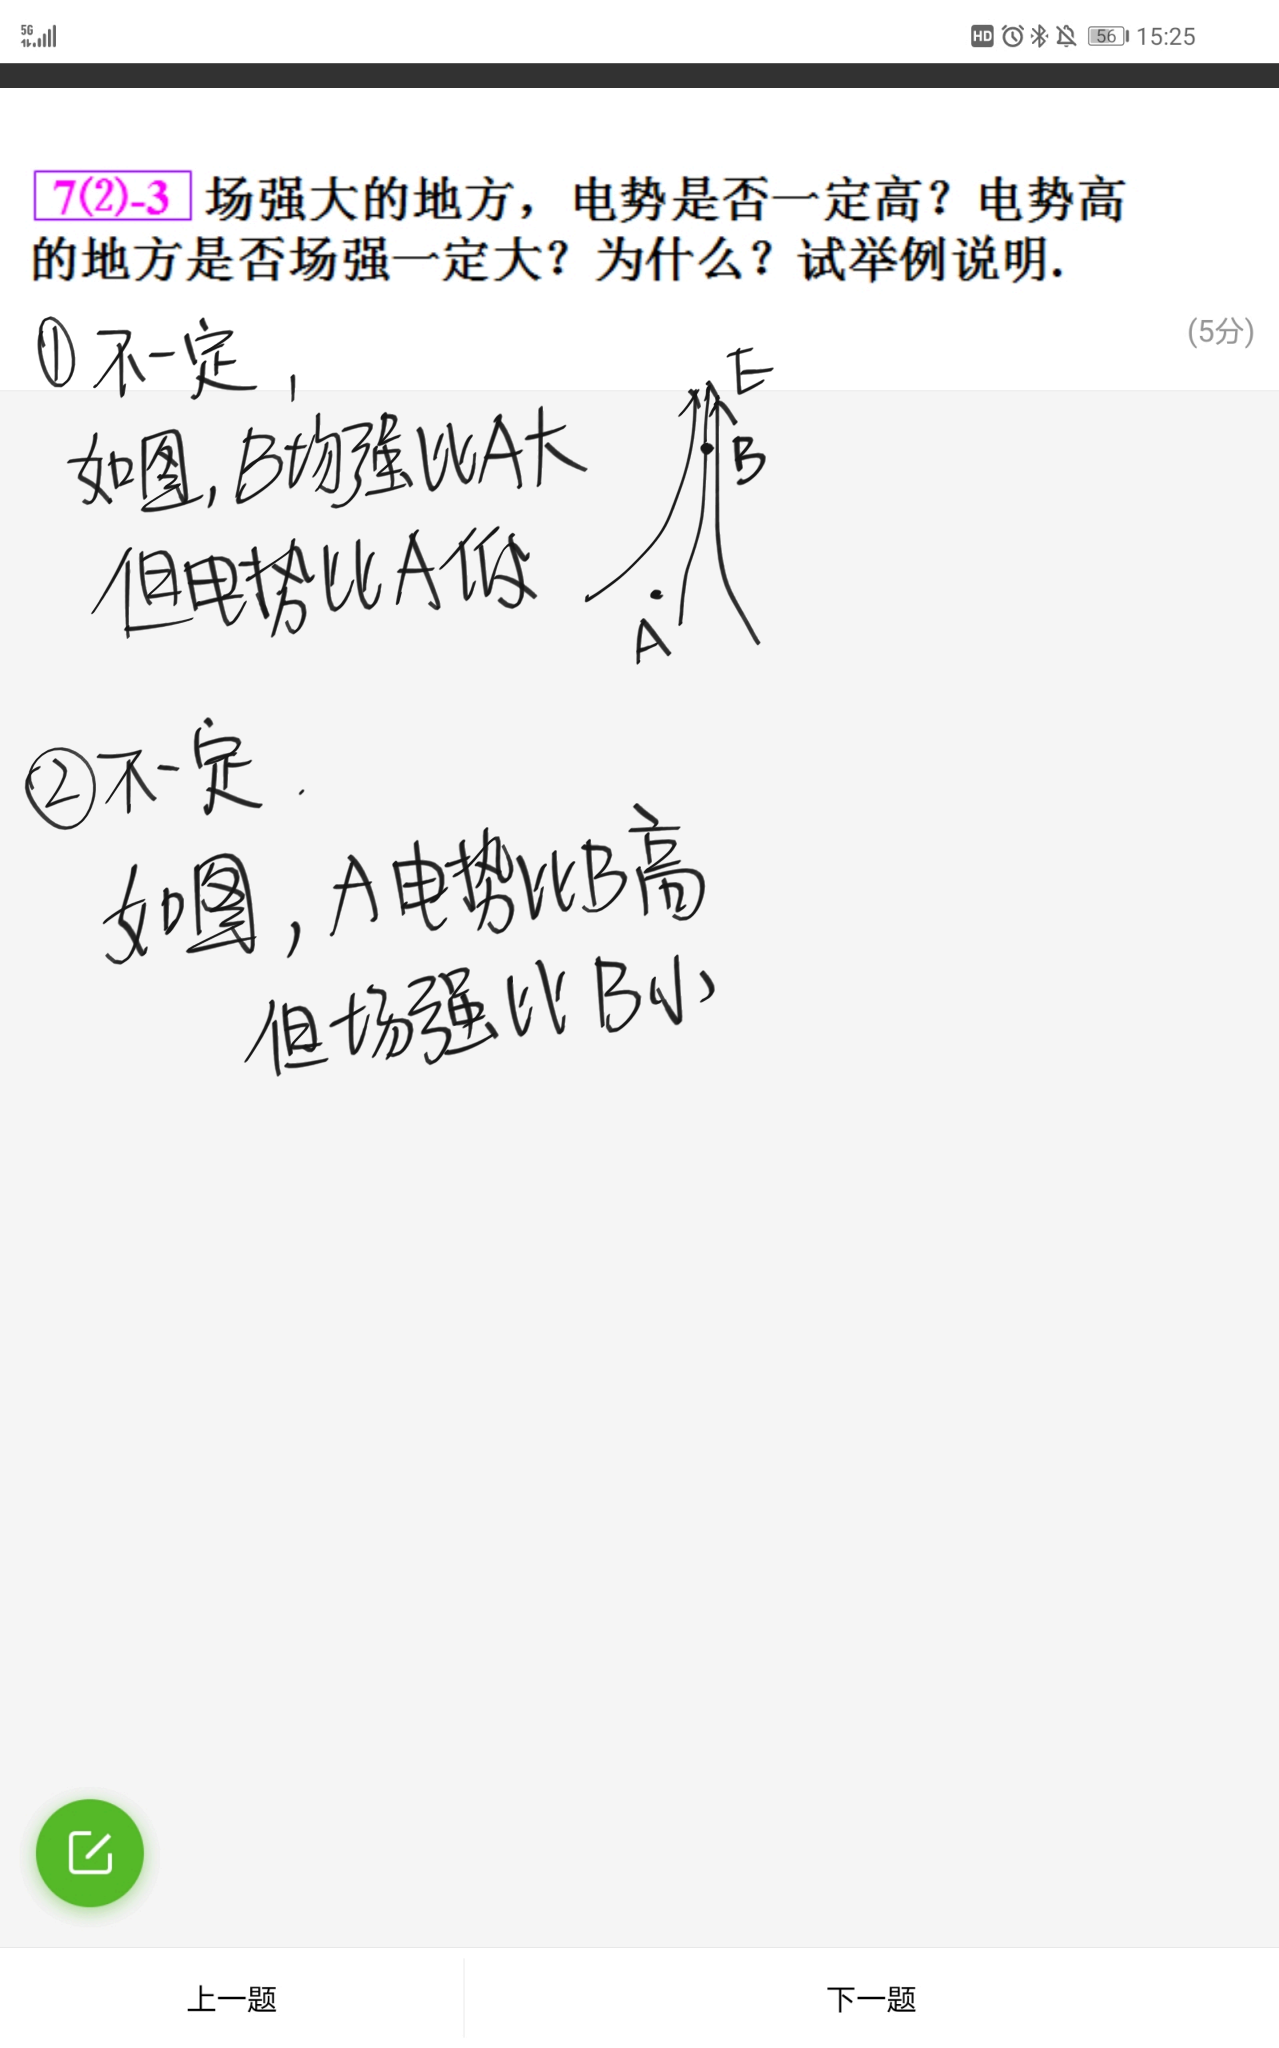 5G
HD 56 15:25
7(2)-3 场强大的地方，电势是否一定高？电势高
的地方是否场强一定大？为什么？试举例说明.
(5分)
①不一定，
如图,B场强比A大
但电势比A低
E
B
A
②不一定.
如图，A电势比B高
但场强比B小
上一题 下一题